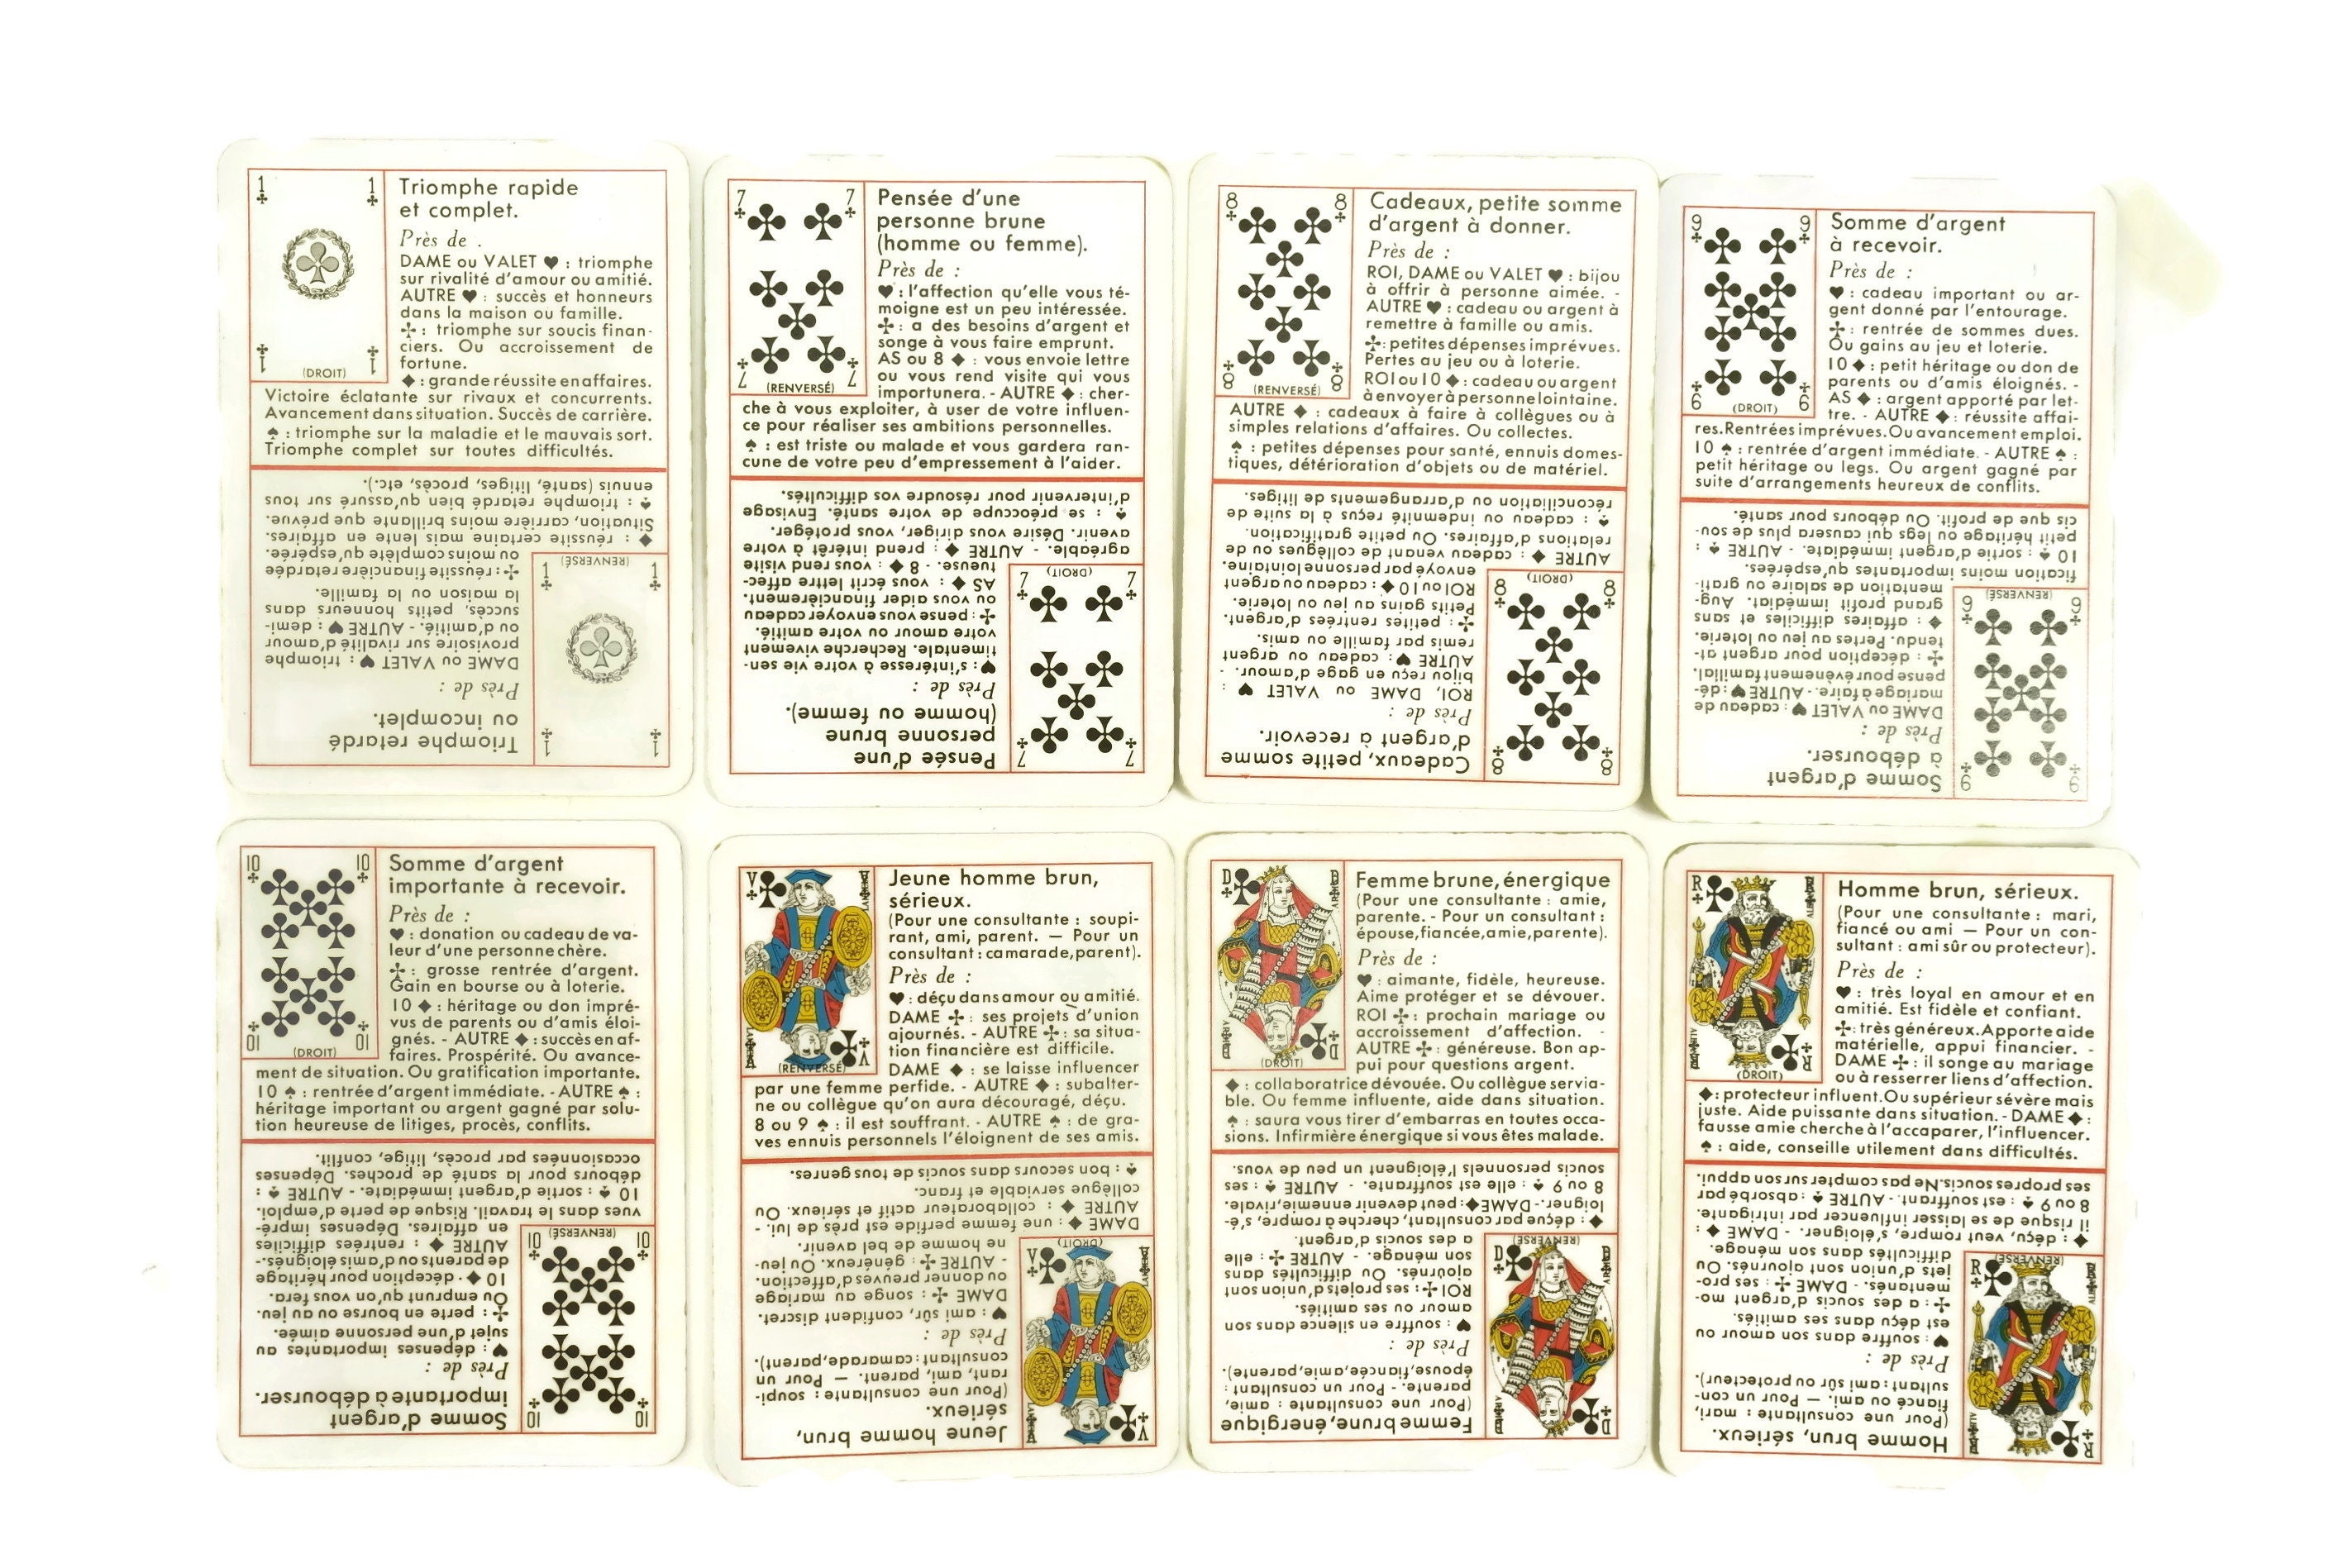 1 1
Triomphe rapide
et complet.
Près de .
DAME ou VALET ♥ : triomphe
sur rivalité d'amour ou amitié.
AUTRE ♥ : succès et honneurs
dans la maison ou famille.
♣ : triomphe sur soucis finan-
ciers. Ou accroissement de
fortune.
♦ : grande réussite en affaires.
1 1
(DROIT)
Victoire éclatante sur rivaux et concurrents.
Avancement dans situation. Succès de carrière.
♠ : triomphe sur la maladie et le mauvais sort.
Triomphe complet sur toutes difficultés.
1 1
Triomphe retardé
ou incomplet.
Près de :
DAME ou VALET ♥ : triomphe
provisoire sur rivalité d'amour
ou d'amitié. - AUTRE ♥ : demi-
succès, petits honneurs dans
la maison ou la famille.
♣ : réussite financière retardée
ou moins complète qu'espérée.
1 1
(RENVERSÉ)
♦ : réussite certaine mais lente en affaires.
Situation, carrière moins brillante que prévue.
♠ : triomphe retardé bien qu'assuré sur tous
ennuis (santé, litiges, procès, etc.).
7 7
Pensée d'une
personne brune
(homme ou femme).
Près de :
♥ : l'affection qu'elle vous té-
moigne est un peu intéressée.
♣ : a des besoins d'argent et
songe à vous faire emprunt.
AS ou 8 ♦ : vous envoie lettre
ou vous rend visite qui vous
importunera. - AUTRE ♦ : cher-
7 7
(RENVERSÉ)
che à vous exploiter, à user de votre influen-
ce pour réaliser ses ambitions personnelles.
♠ : est triste ou malade et vous gardera ran-
cune de votre peu d'empressement à l'aider.
7 7
Pensée d'une
personne brune
(homme ou femme).
Près de :
♥ : s'intéresse à votre vie sen-
timentale. Recherche vivement
votre amour ou votre amitié.
♣ : pense vous envoyer cadeau
ou vous aider financièrement.
AS ♦ : vous écrit lettre affec-
tueuse. - 8 ♦ : vous rend visite
7 7
(DROIT)
agréable. - AUTRE ♦ : prend intérêt à votre
avenir. Désire vous diriger, vous protéger.
♠ : se préoccupe de votre santé. Envisage
d'intervenir pour résoudre vos difficultés.
8 8
Cadeaux, petite somme
d'argent à donner.
Près de :
ROI, DAME ou VALET ♥ : bijou
à offrir à personne aimée. -
AUTRE ♥ : cadeau ou argent à
remettre à famille ou amis.
♣ : petites dépenses imprévues.
Pertes au jeu ou à loterie.
ROI ou 10 ♦ : cadeau ou argent
à envoyer à personne lointaine.
8 8
(RENVERSÉ)
AUTRE ♦ : cadeaux à faire à collègues ou à
simples relations d'affaires. Ou collectes.
♠ : petites dépenses pour santé, ennuis domes-
tiques, détérioration d'objets ou de matériel.
8 8
Cadeaux, petite somme
d'argent à recevoir.
Près de :
ROI, DAME ou VALET ♥ :
bijou reçu en gage d'amour. -
AUTRE ♥ : cadeau ou argent
remis par famille ou amis.
♣ : petites rentrées d'argent.
Petits gains au jeu ou loterie.
ROI ou 10 ♦ : cadeau ou argent
envoyé par personne lointaine.
8 8
(DROIT)
AUTRE ♦ : cadeau venant de collègues ou de
relations d'affaires. Ou petite gratification.
♠ : cadeau ou indemnité reçus à la suite de
réconciliation ou d'arrangements de litiges.
9 9
Somme d'argent
à recevoir.
Près de :
♥ : cadeau important ou ar-
gent donné par l'entourage.
♣ : rentrée de sommes dues.
Ou gains au jeu et loterie.
10 ♦ : petit héritage ou don de
parents ou d'amis éloignés. -
AS ♦ : argent apporté par let-
tre. - AUTRE ♦ : réussite affai-
9 9
(DROIT)
res. Rentrées imprévues. Ou avancement emploi.
10 ♠ : rentrée d'argent immédiate. - AUTRE ♠ :
petit héritage ou legs. Ou argent gagné par
suite d'arrangements heureux de conflits.
9 9
Somme d'argent
à débourser.
Près de :
DAME ou VALET ♥ : cadeau de
mariage à faire. - AUTRE ♥ : dé-
pense pour évènement familial.
♣ : déception pour argent at-
tendu. Pertes au jeu ou loterie.
♦ : affaires difficiles et sans
grand profit immédiat. Aug-
mentation de salaire ou grati-
9 9
(RENVERSÉ)
fication moins importantes qu'espérées.
10 ♠ : sortie d'argent immédiate. - AUTRE ♠ :
petit héritage ou legs qui causera plus de sou-
cis que de profit. Ou débours pour santé.
10 10
Somme d'argent
importante à recevoir.
Près de :
♥ : donation ou cadeau de va-
leur d'une personne chère.
♣ : grosse rentrée d'argent.
Gain en bourse ou à loterie.
10 ♦ : héritage ou don impré-
vus de parents ou d'amis éloi-
gnés. - AUTRE ♦ : succès en af-
faires. Prospérité. Ou avance-
10 10
(DROIT)
ment de situation. Ou gratification importante.
10 ♠ : rentrée d'argent immédiate. - AUTRE ♠ :
héritage important ou argent gagné par solu-
tion heureuse de litiges, procès, conflits.
10 10
Somme d'argent
importante à débourser.
Près de :
♥ : dépenses importantes au
sujet d'une personne aimée.
♣ : perte en bourse ou au jeu.
Ou emprunt qu'on vous fera.
10 ♦ : déception pour héritage
de parents ou d'amis éloignés.-
AUTRE ♦ : rentrées difficiles
en affaires. Dépenses impré-
10 10
(RENVERSÉ)
vues dans le travail. Risque de perte d'emploi.
10 ♠ : sortie d'argent immédiate. - AUTRE ♠ :
débours pour la santé de proches. Dépenses
occasionnées par procès, litige, conflit.
V
Jeune homme brun,
sérieux.
(Pour une consultante : soupi-
rant, ami, parent. — Pour un
consultant : camarade, parent).
Près de :
♥ : déçu dans amour ou amitié.
DAME ♣ : ses projets d'union
ajournés. - AUTRE ♣ : sa situa-
tion financière est difficile.
DAME ♦ : se laisse influencer
V
(RENVERSÉ)
par une femme perfide. - AUTRE ♦ : subalter-
ne ou collègue qu'on aura découragé, déçu.
8 ou 9 ♠ : il est souffrant. - AUTRE ♠ : de gra-
ves ennuis personnels l'éloignent de ses amis.
V
Jeune homme brun,
sérieux.
(Pour une consultante : soupi-
rant, ami, parent. — Pour un
consultant : camarade, parent).
Près de :
♥ : ami sûr, confident discret.
DAME ♣ : songe au mariage
ou donner preuves d'affection.
- AUTRE ♣ : généreux. Ou jeu-
ne homme de bel avenir.
V
(DROIT)
DAME ♦ : une femme perfide est près de lui. -
AUTRE ♦ : collaborateur actif et sérieux. Ou
collègue serviable et franc.
♠ : bon secours dans soucis de tous genres.
D
Femme brune, énergique
(Pour une consultante : amie,
parente. - Pour un consultant :
épouse, fiancée, amie, parente).
Près de :
♥ : aimante, fidèle, heureuse.
Aime protéger et se dévouer.
ROI ♣ : prochain mariage ou
accroissement d'affection. -
AUTRE ♣ : généreuse. Bon ap-
pui pour questions argent.
D
(DROIT)
♦ : collaboratrice dévouée. Ou collègue servia-
ble. Ou femme influente, aide dans situation.
♠ : saura vous tirer d'embarras en toutes occa-
sions. Infirmière énergique si vous êtes malade.
D
Femme brune, énergique
(Pour une consultante : amie,
parente. - Pour un consultant :
épouse, fiancée, amie, parente).
Près de :
♥ : souffre en silence dans son
amour ou ses amitiés.
ROI ♣ : ses projets d'union sont
ajournés. Ou difficultés dans
son ménage. - AUTRE ♣ : elle
a des soucis d'argent.
D
(RENVERSÉ)
♦ : déçue par consultant, cherche à rompre, s'é-
loigner. - DAME ♦ : peut devenir ennemie, rivale.
8 ou 9 ♠ : elle est souffrante. - AUTRE ♠ : ses
soucis personnels l'éloignent un peu de vous.
R
Homme brun, sérieux.
(Pour une consultante : mari,
fiancé ou ami — Pour un con-
sultant : ami sûr ou protecteur).
Près de :
♥ : très loyal en amour et en
amitié. Est fidèle et confiant.
♣ : très généreux. Apporte aide
matérielle, appui financier. -
DAME ♣ : il songe au mariage
ou à resserrer liens d'affection.
R
(DROIT)
♦ : protecteur influent. Ou supérieur sévère mais
juste. Aide puissante dans situation. - DAME ♦ :
fausse amie cherche à l'accaparer, l'influencer.
♠ : aide, conseille utilement dans difficultés.
R
Homme brun, sérieux.
(Pour une consultante : mari,
fiancé ou ami. — Pour un con-
sultant : ami sûr ou protecteur).
Près de :
♥ : souffre dans son amour ou
est déçu dans ses amitiés.
♣ : a des soucis d'argent mo-
mentanés. - DAME ♣ : ses pro-
jets d'union sont ajournés. Ou
difficultés dans son ménage.
R
(RENVERSÉ)
♦ : déçu, veut rompre, s'éloigner. - DAME ♦ :
il risque de se laisser influencer par intrigante.
8 ou 9 ♠ : est souffrant. - AUTRE ♠ : absorbé par
ses propres soucis. Ne pas compter sur son appui.